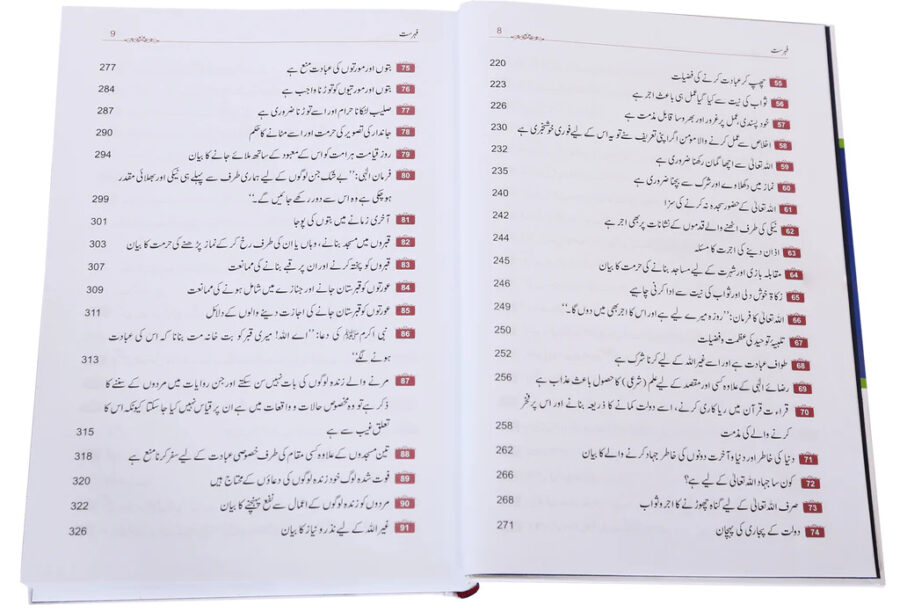 فہرست 8
55 چھپ کر عبادت کرنے کی فضیلت 220
56 ثواب کی نیت سے کیا گیا عمل ہی باعث اجر ہے 223
57 خود پسندی، عمل پر غرور اور بھروسا قابل مذمت ہے 226
58 اخلاص سے عمل کرنے والا مومن اگر اپنی تعریف سنے تو یہ اس کے لیے فوری خوشخبری ہے 230
59 اللہ تعالیٰ سے اچھا گمان رکھنا ضروری ہے 232
60 نماز میں دکھلاوے اور شرک سے بچنا ضروری ہے 235
61 اللہ تعالیٰ کے حضور سجدہ نہ کرنے کی سزا 240
62 نیکی کی طرف اٹھنے والے قدموں کے نشانات پر بھی اجر ہے 242
63 اذان دینے کی اجرت کا مسئلہ 244
64 مقابلہ بازی اور شہرت کے لیے مساجد بنانے کی حرمت کا بیان 245
65 زکاۃ خوش دلی اور ثواب کی نیت سے ادا کرنی چاہیے 246
66 اللہ تعالیٰ کا فرمان: ’’روزہ میرے لیے ہے اور اس کا اجر بھی میں دوں گا۔‘‘ 249
67 تلبیۂ توحید کی عظمت و فضیلت 250
68 طواف عبادت ہے اور اسے غیر اللہ کے لیے کرنا شرک ہے 252
69 رضائے الٰہی کے علاوہ کسی اور مقصد کے لیے علم (شرعی) کا حصول باعث عذاب ہے 256
70 قراءت قرآن میں ریاکاری کرنے، اسے دولت کمانے کا ذریعہ بنانے اور اس پر فخر
کرنے والے کی مذمت 258
71 دنیا کی خاطر اور دنیا و آخرت دونوں کی خاطر جہاد کرنے والے کا بیان 262
72 کون سا جہاد اللہ تعالیٰ کے لیے ہے؟ 266
73 صرف اللہ تعالیٰ کے لیے گناہ چھوڑنے کا اجر و ثواب 268
74 دولت کے پجاری کی پہچان 271
فہرست 9
75 بتوں اور مورتوں کی عبادت منع ہے 277
76 بتوں اور مورتیوں کو توڑنا واجب ہے 284
77 صلیب لٹکانا حرام اور اسے توڑنا ضروری ہے 287
78 جاندار کی تصویر کی حرمت اور اسے مٹانے کا حکم 290
79 روز قیامت ہر امت کو اس کے معبود کے ساتھ ملائے جانے کا بیان 294
80 فرمان الٰہی: ’’بے شک جن لوگوں کے لیے ہماری طرف سے پہلے ہی نیکی اور بھلائی مقدر
ہو چکی ہے وہ اس سے دور رکھے جائیں گے۔‘‘ 299
81 آخری زمانے میں بتوں کی پوجا 301
82 قبروں میں مسجد بنانے، وہاں یا ان کی طرف رخ کر کے نماز پڑھنے کی حرمت کا بیان 303
83 قبروں کو پختہ کرنے اور ان پر قبے بنانے کی ممانعت 307
84 عورتوں کو قبرستان جانے اور جنازے میں شامل ہونے کی ممانعت 309
85 عورتوں کو قبرستان جانے کی اجازت دینے والوں کے دلائل 311
86 نبی اکرم ﷺ کی دعا: ’’اے اللہ! میری قبر کو بت خانہ مت بنانا کہ اس کی عبادت
ہونے لگے‘‘ 313
87 مرنے والے زندہ لوگوں کی بات نہیں سن سکتے اور جن روایات میں مردوں کے سننے کا
ذکر ہے تو وہ مخصوص حالات و واقعات میں ہے ان پر قیاس نہیں کیا جا سکتا کیونکہ اس کا
تعلق غیب سے ہے 315
88 تین مسجدوں کے علاوہ کسی مقام کی طرف خصوصی عبادت کے لیے سفر کرنا منع ہے 318
89 فوت شدہ لوگ خود زندہ لوگوں کی دعاؤں کے محتاج ہیں 320
90 مردوں کو زندہ لوگوں کے اعمال سے نفع پہنچنے کا بیان 322
91 غیر اللہ کے لیے نذر و نیاز کا بیان 326